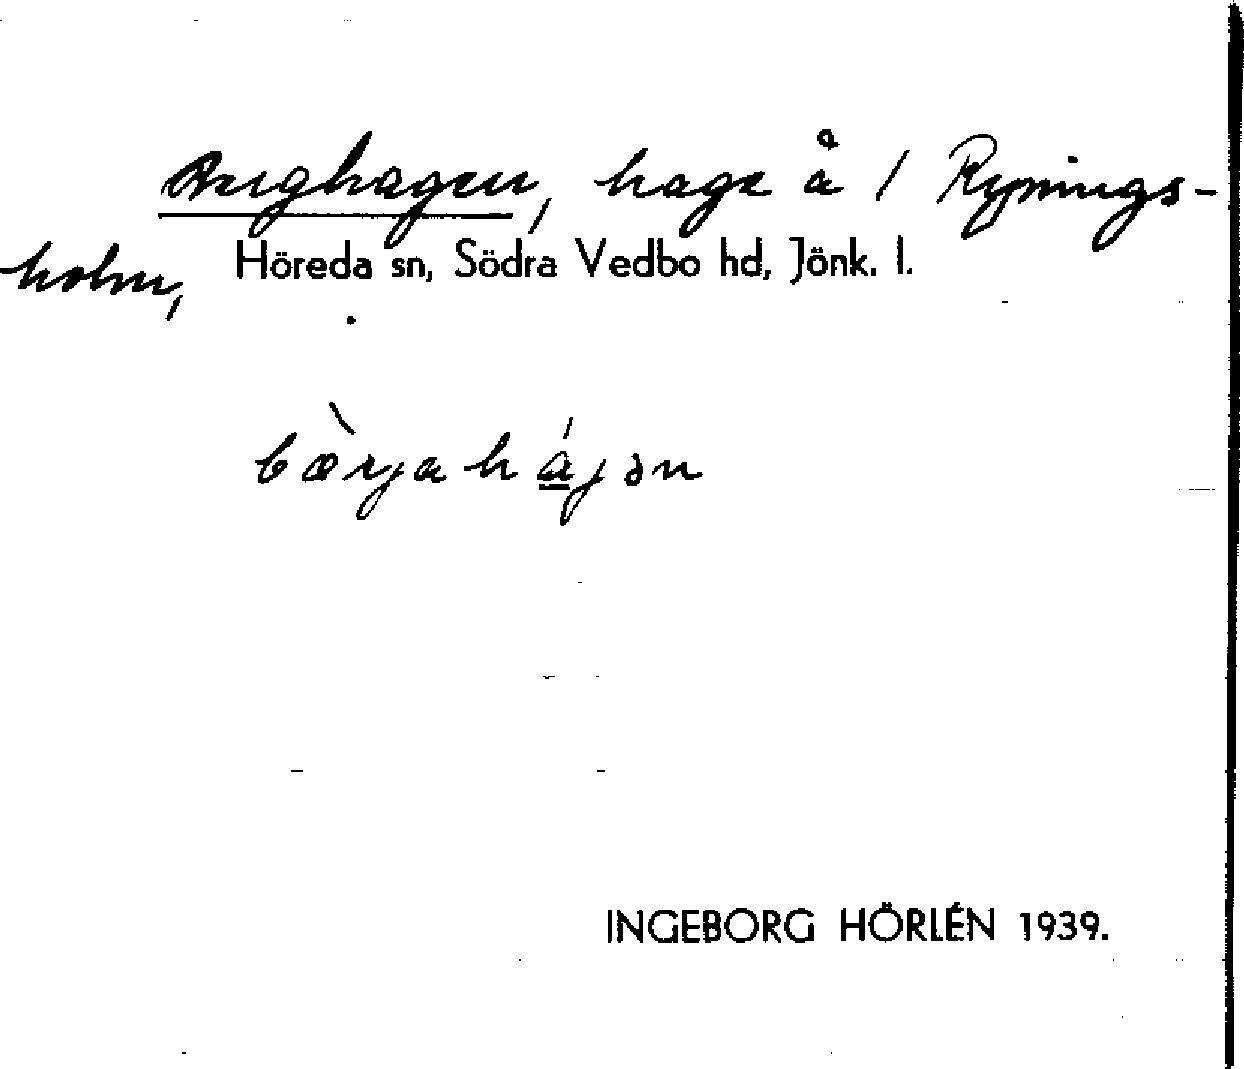 Berghagen, hage å 1 Rynings-
holm, Höreda sn, Södra Vedbo hd, Jönk. l.
bæ̀rjahájən
INGEBORG HÖRLÉN 1939.